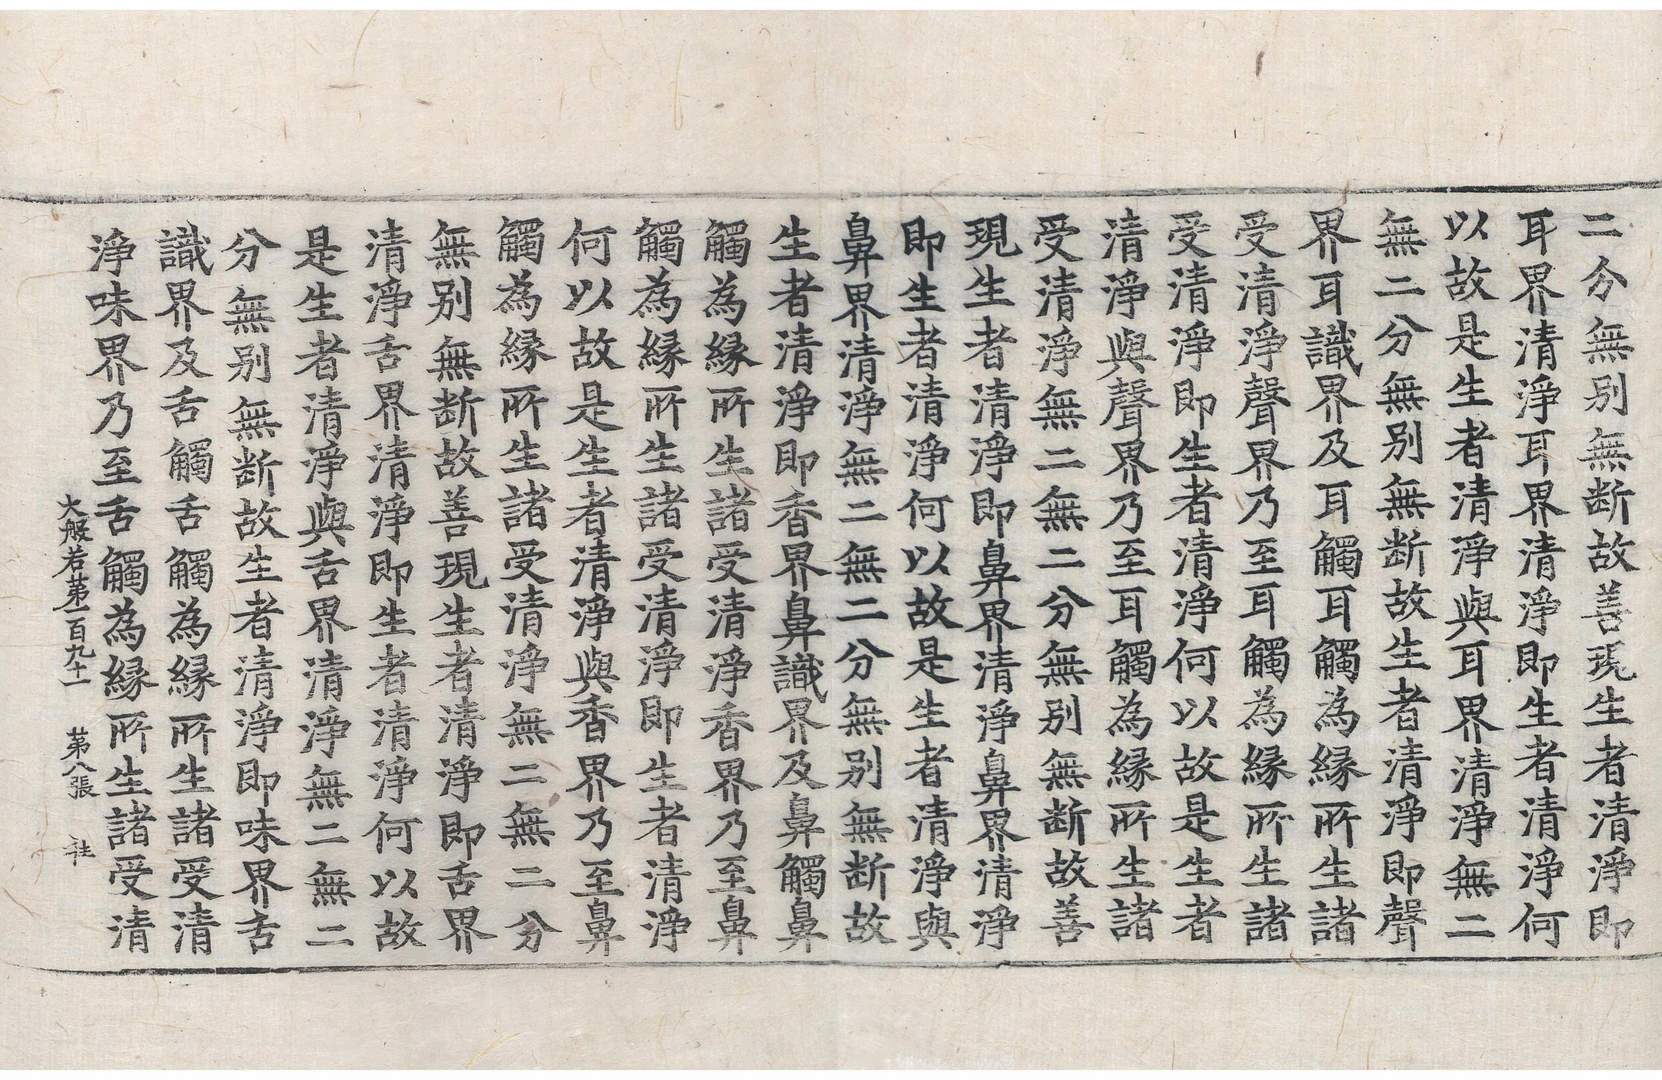 二分無別無断故善現生者清淨即
耳界清淨耳界清淨即生者清淨何
以故是生者清淨與耳界清淨無二
無二分無別無断故生者清淨即聲
界耳識界及耳觸耳觸為縁所生諸
受清淨聲界乃至耳觸為縁所生諸
受清淨即生者清淨何以故是生者
清淨與聲界乃至耳觸為縁所生諸
受清淨無二無二分無別無断故善
現生者清淨即鼻界清淨鼻界清淨
即生者清淨何以故是生者清淨與
鼻界清淨無二無二分無別無断故
生者清淨即香界鼻識界及鼻觸鼻
觸為縁所生諸受清淨香界乃至鼻
觸為縁所生諸受清淨即生者清淨
何以故是生者清淨與香界乃至鼻
觸為縁所生諸受清淨無二無二分
無別無断故善現生者清淨即舌界
清淨舌界清淨即生者清淨何以故
是生者清淨與舌界清淨無二無二
分無別無断故生者清淨即味界舌
識界及舌觸舌觸為縁所生諸受清
淨味界乃至舌觸為縁所生諸受清
大般若第一百九十一 第八張 往